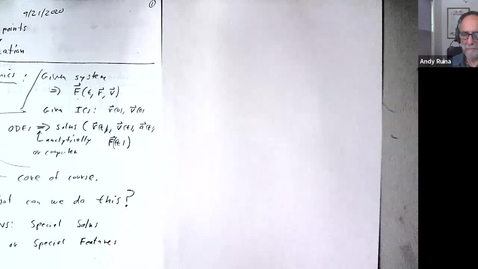 9/21/2020
①
points
ation
ics: Given system
⇒ F⃗(t, r⃗, v⃗)
Given ICs: r⃗(0), v⃗(0)
ODEs ⇒ solns (r⃗(t), v⃗(t), a⃗(t),
analytically F⃗(t))
or computer
core of course.
hat can we do this?
ns: Special Solns
or Special Features
Andy Ruina